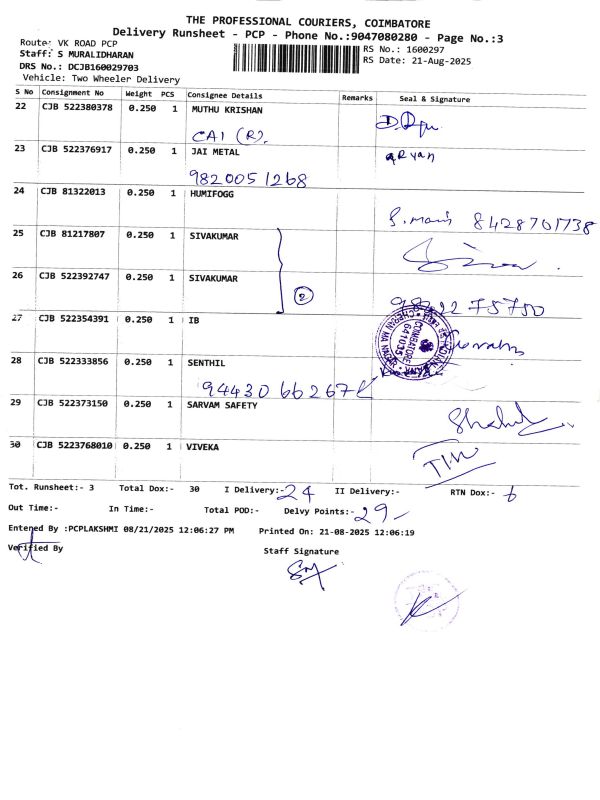 THE PROFESSIONAL COURIERS, COIMBATORE
Delivery Runsheet - PCP - Phone No.:9047080280 - Page No.:3
Route: VK ROAD PCP
RS No.: 1600297
Staff: S MURALIDHARAN
RS Date: 21-Aug-2025
DRS No.: DCJB160029703
Vehicle: Two Wheeler Delivery
S No Consignment No Weight PCS Consignee Details Remarks Seal & Signature
22 CJB 522380378 0.250 1 MUTHU KRISHAN
CAI (R).
23 CJB 522376917 0.250 1 JAI METAL aryan
9820051268
24 CJB 81322013 0.250 1 HUMIFOGG
S. mani 8428701738
25 CJB 81217807 0.250 1 SIVAKUMAR
26 CJB 522392747 0.250 1 SIVAKUMAR
2
27 CJB 522354391 0.250 1 IB
COIMBATORE
641035
28 CJB 522333856 0.250 1 SENTHIL
9443066267
29 CJB 522373150 0.250 1 SARVAM SAFETY
30 CJB 5223768010 0.250 1 VIVEKA
Tot. Runsheet:- 3 Total Dox:- 30 I Delivery:- 24 II Delivery:- RTN Dox:- 6
Out Time:- In Time:- Total POD:- Delvy Points:- 29
Entened By :PCPLAKSHMI 08/21/2025 12:06:27 PM Printed On: 21-08-2025 12:06:19
Verified By
Staff Signature